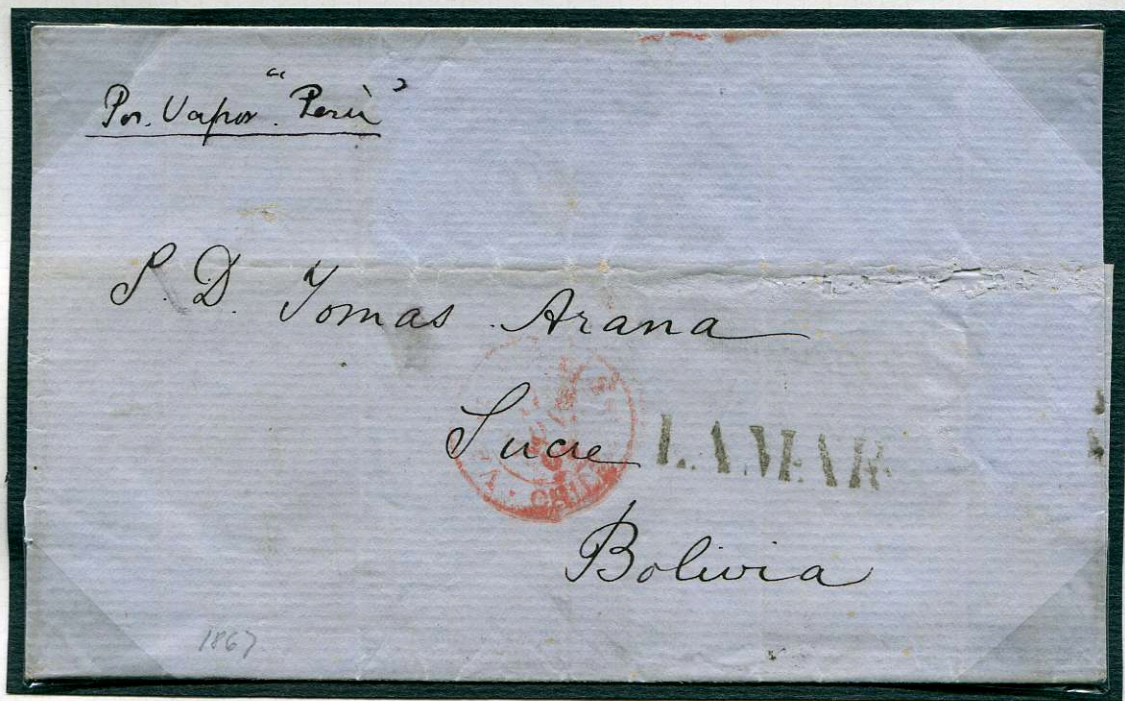 Por. Vapor. "Perú"
S. D. Tomas Arana
Sucre
LAMAR
CHILE
Bolivia
1867